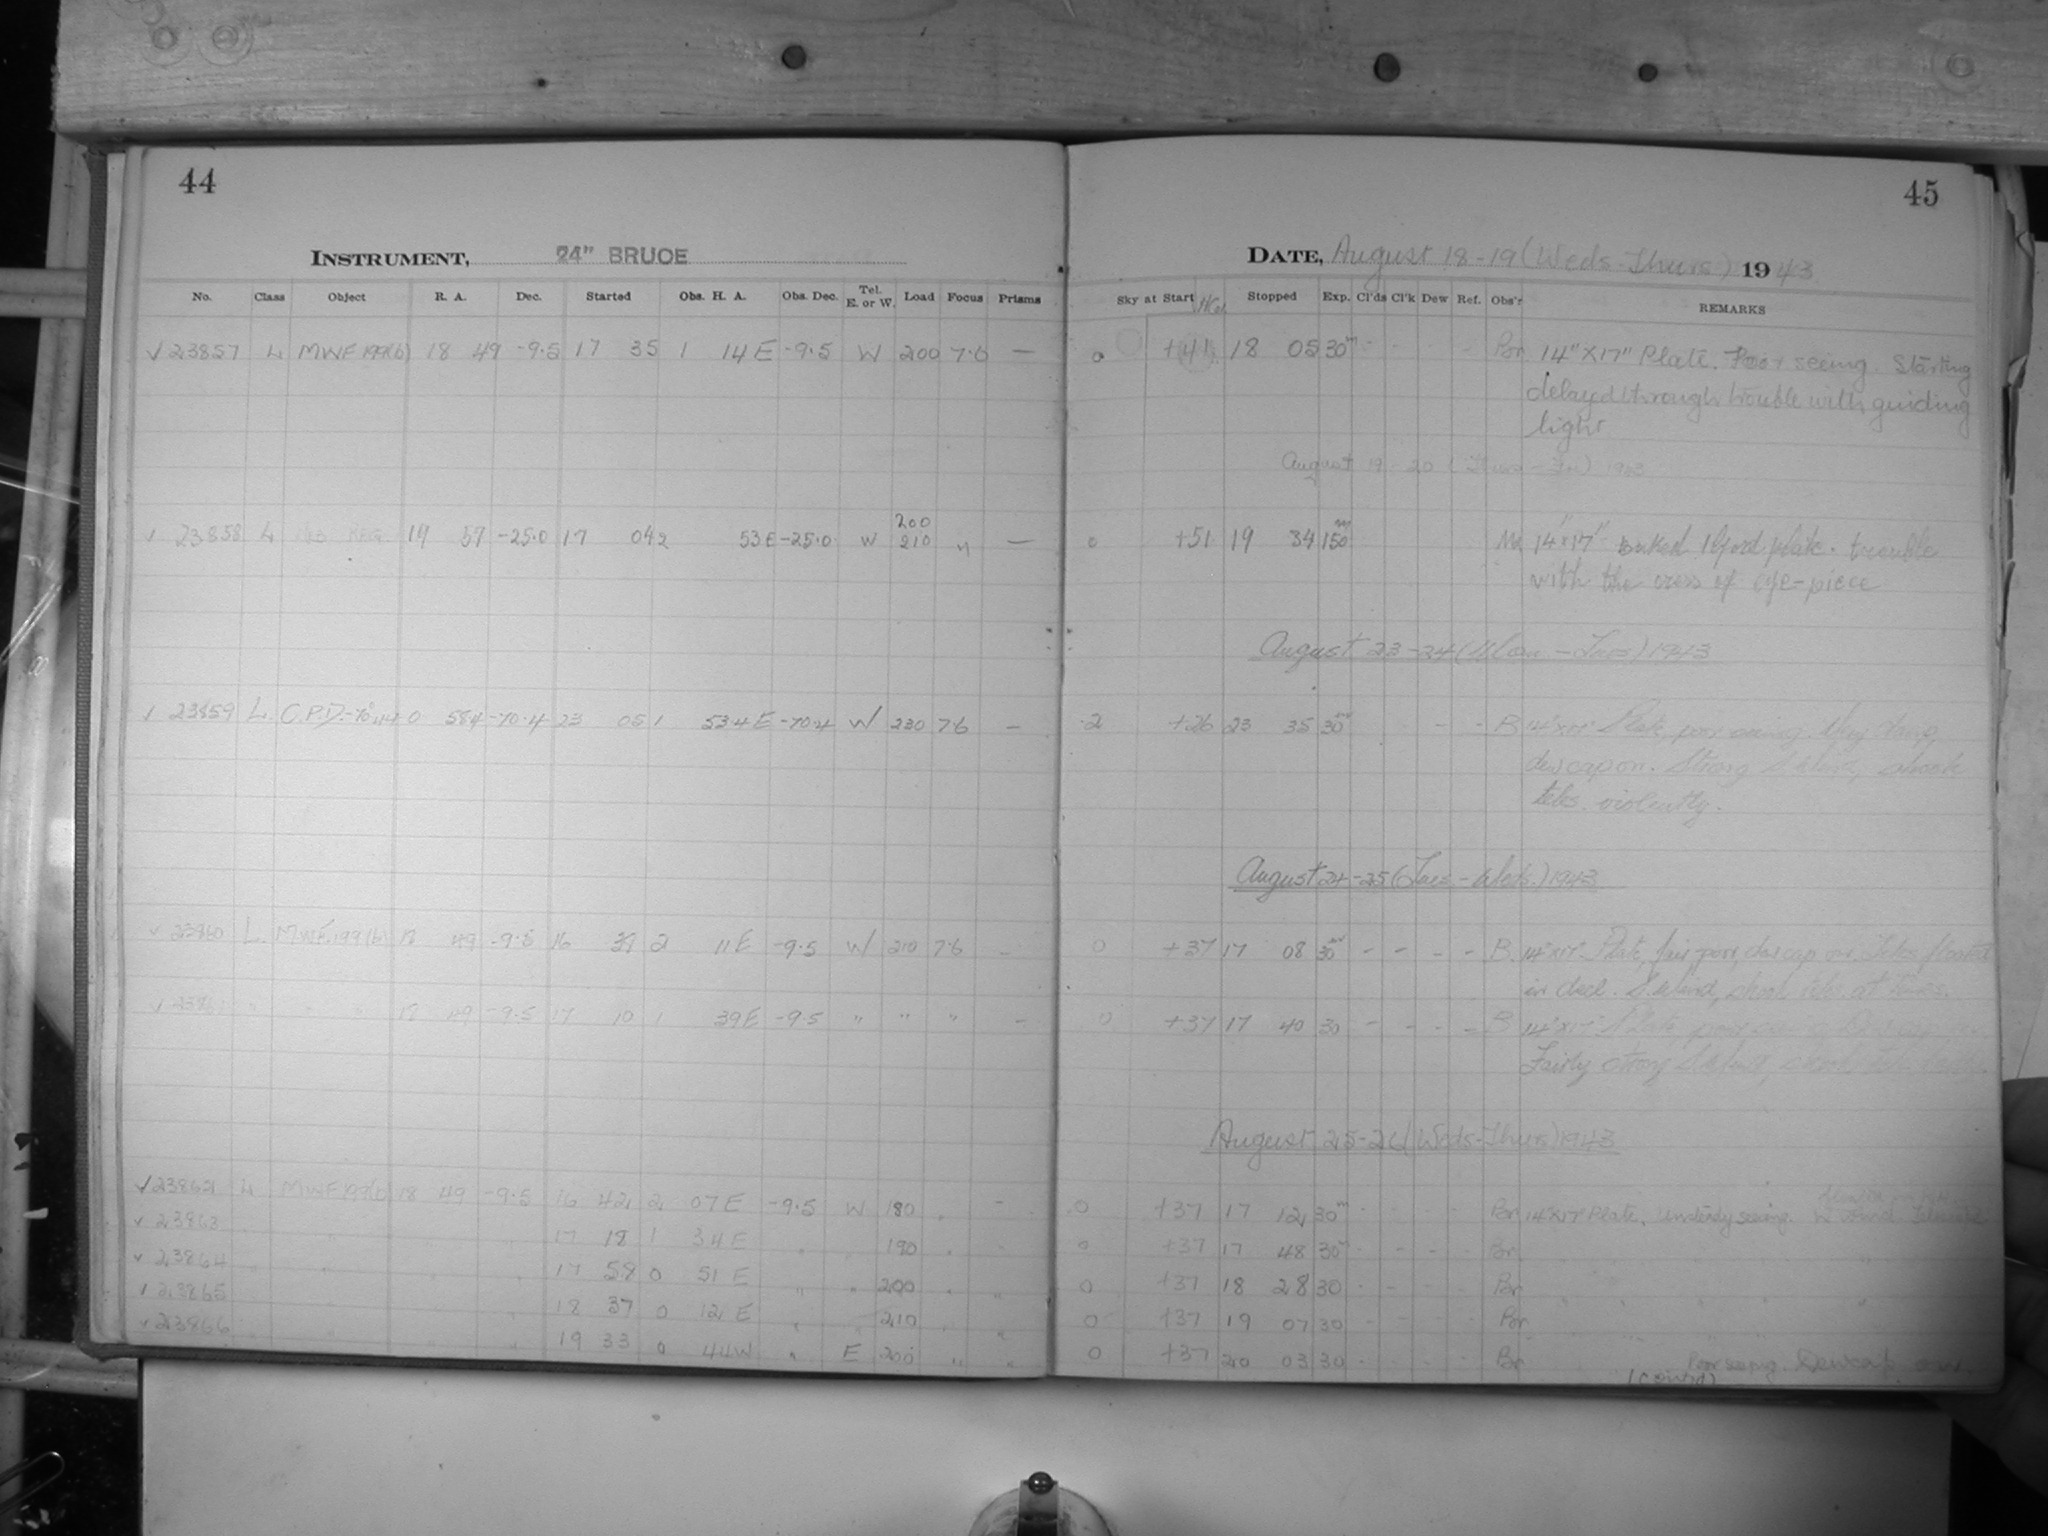 44
INSTRUMENT, 24" BRUCE
No. Class Object R. A. Dec. Started Obs. H. A. Obs. Dec. Tel. E. or W. Load Focus Prisms
√ 23857 L MWF 199(b) 18 49 -9.5 17 35 1 14 E -9.5 W 200 7.6 —
√ 23858 L 19 57 -25.0 17 04 2 53 E -25.0 W 200 210 " —
√ 23859 L. C.P.D. -70° 0 58.4 -70.4 23 05 1 53.4 E -70.4 W 230 7.6 —
√ 23860 L. MWF.199(b) 18 49 -9.5 16 2 11 E -9.5 W 210 7.6 —
√ 2386 " " " 18 49 -9.5 17 10 1 39 E -9.5 " " " —
√ 23862 L MWF 199(b) 18 49 -9.5 16 42 2 07 E -9.5 W 180 " -
√ 23863 17 18 1 34 E " " 190 " -
√ 23864 " " " 17 58 0 51 E " " 200 " "
√ 23865 " 18 37 0 12 E " " 210 " "
√ 23866 19 33 0 44 W " E 200 " "
45
DATE, August 18-19 (Weds-Thurs) 1943
Sky at Start Stopped Exp. Cl'ds Cl'k Dew Ref. Obs'r REMARKS
0 +41 18 05 30m - - Por 14" x 17" Plate. Poor seeing. Starting
delayed through trouble with guiding
light
August 19-20 (Thurs-Fri) 1943
0 +51 19 34 150m 14" x 17" Baked Ilford plate. trouble
with the cross of eye-piece
August 23-24 (Mon-Tues) 1943
2 +26 23 35 30m - - B 14"x17" Plate, poor seeing. Very damp,
dewcap on. Strong S. Wind, shook
teles. violently.
August 24-25 (Tues-Weds.) 1943
0 +37 17 08 30m - - - - B. 14"x17" Plate, fair-poor, dewcap on. Teles. floated
in decl. S. Wind, shook teles. at times.
0 +37 17 40 30 - - - - B 14"x17" Plate, poor seeing
Fairly strong S. Wind, shook
August 25-26 (Weds-Thurs) 1943
0 +37 17 12 30m Por 14"x17" Plate. Unsteady seeing.
0 +37 17 48 30m - - - - Por
0 +37 18 28 30 - - - - Por " " " "
0 +37 19 07 30 - - - - Por " " " "
0 +37 20 03 30 - - - - Por Poor seeing. Dewcap on.
(contd)